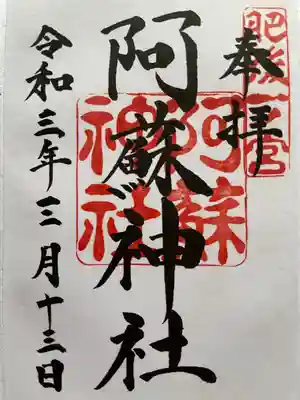 肥後一宮
奉拝
阿蘇神社
阿蘇神社
令和三年三月十三日